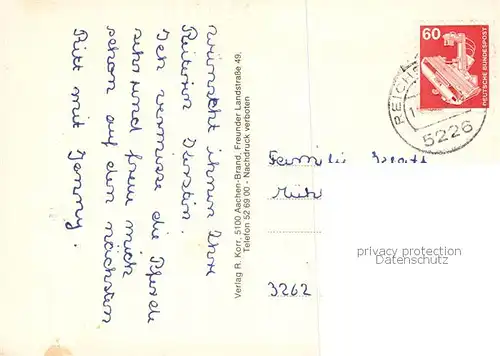 wünscht ihnen Ihre
Reiterin Kerstin.
Ich vermisse die Pferde
sehr und freue mich
schon auf den nächsten
Ritt mit Jenny.
Verlag R. Korr, 5100 Aachen-Brand, Freunder Landstraße 49.
Telefon 52 69 00 - Nachdruck verboten
60
DEUTSCHE BUNDESPOST
REICHS
5226
Familie
3262
privacy protection
Datenschutz